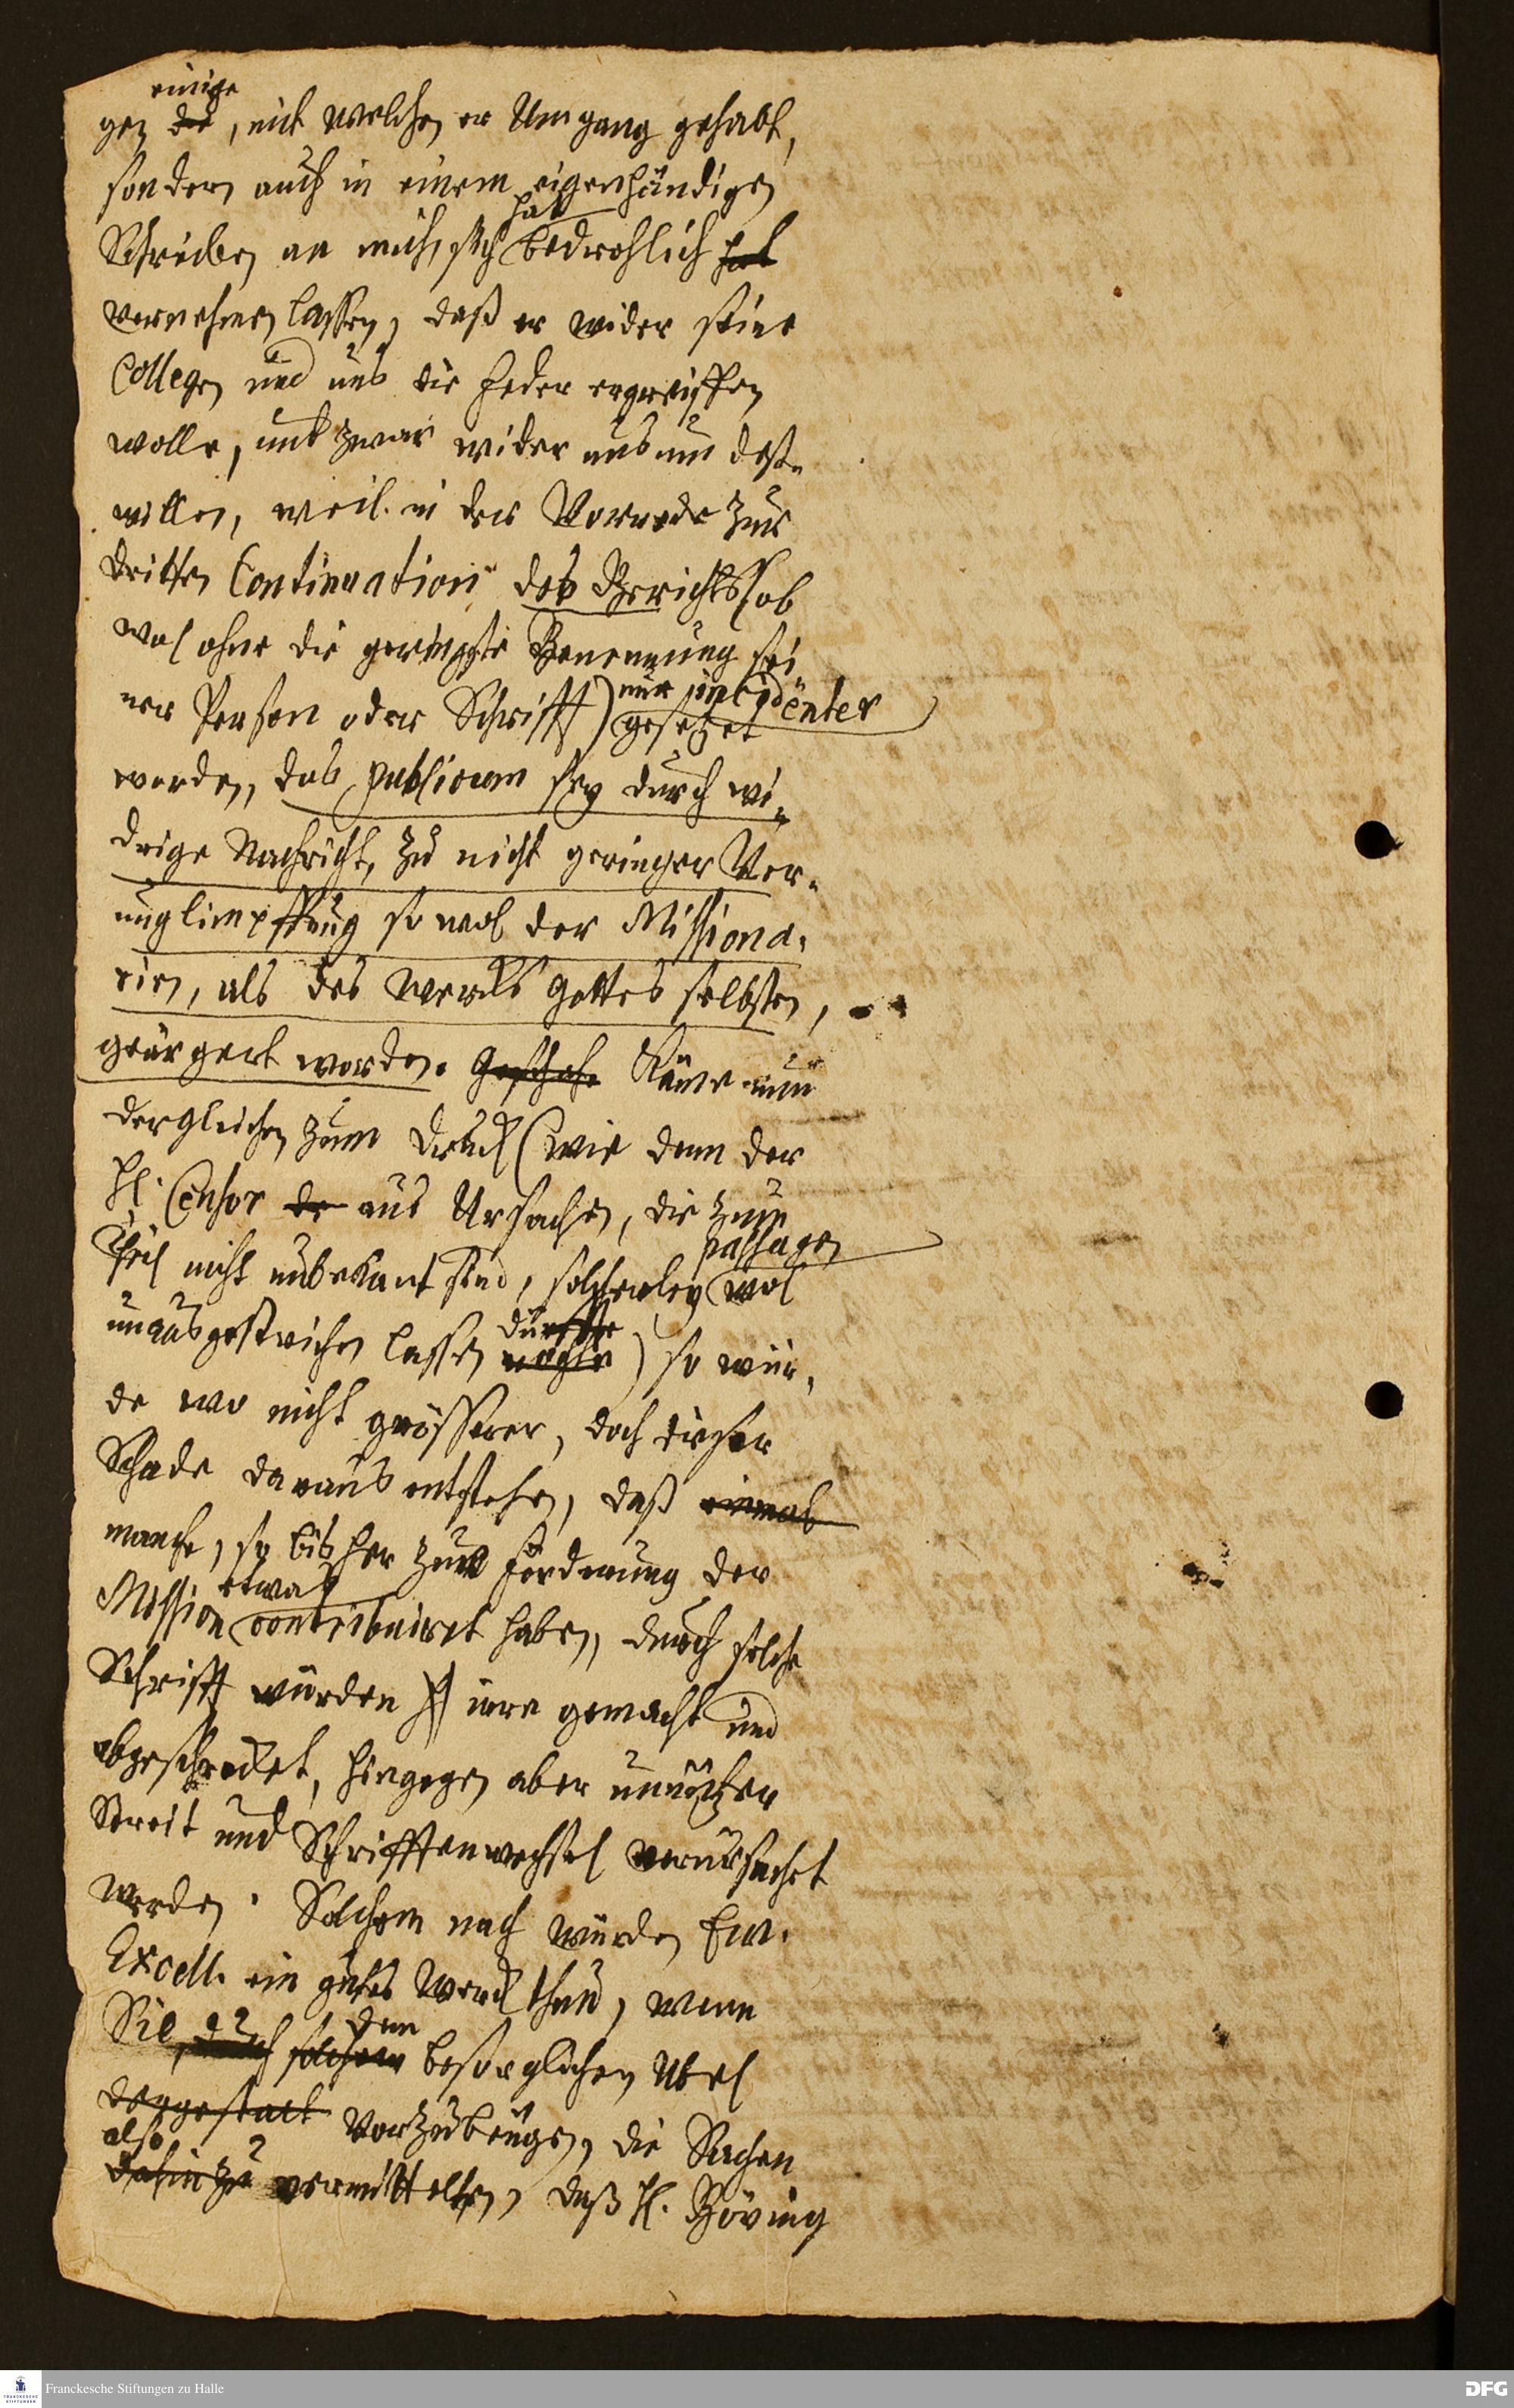 einige
gen die, mit welchen er Umgang gehabt,
sondern auch in einem eigenhändigen
hat
Schreiben an mich, sich bedrohlich hat
vernehmen lassen, daß er wider seine
Collegen und uns die Feder ergreiffen
wolle, und zwar wider uns um deß-
willen, weil in der Vorrede zur
dritten Continuation des Berichts (ob
wol ohne die geringste Benennung sei
ner Person oder Schrifft) nur incidenter
gesetzet
worden, das publicum sey durch wi-
drige Nachricht, zu nicht geringer Ver-
unglimpffung so wol der Missiona-
rien, als des Wercks Gottes selbsten,
geärgert worden. Geschehe Käme nun
dergleichen zum Druck (wie denn der
H. Censor de aus Ursachen, die zum
passagen
Theil nicht unbekant sind, solcherley wol
dürffte
unausgestrichen lassen möchte) so wür-
de wo nicht grösserer, doch dieser
Schade daraus entstehen, daß einmal
manche, so bisher zur Förderung der
etwas
Mission contribuiret haben, durch solche
Schrifft würden irre gemacht und
abgeschrecket, hingegen aber unnützer
Streit und Schrifftenwechsel verursachet
werden. Solchem nach würden Ew.
Excell. ein gutes Werck thun, wenn
dem
Sie, solchem besorglichen Ubel
dergestalt vorzubeugen, die Sachen
also
dahin zu vermittelten, daß H. Böving
Franckesche Stiftungen zu Halle
FRANCKESCHE STIFTUNGEN
DFG